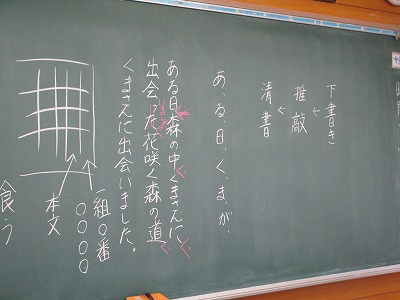 下書き
推敲
清書
あ、る、日、く、ま、が、
ある日森の中くまさんに、
出会った花咲く森の道
くまさんに出会いました。
一組〇番
〇〇〇〇
本文
食う